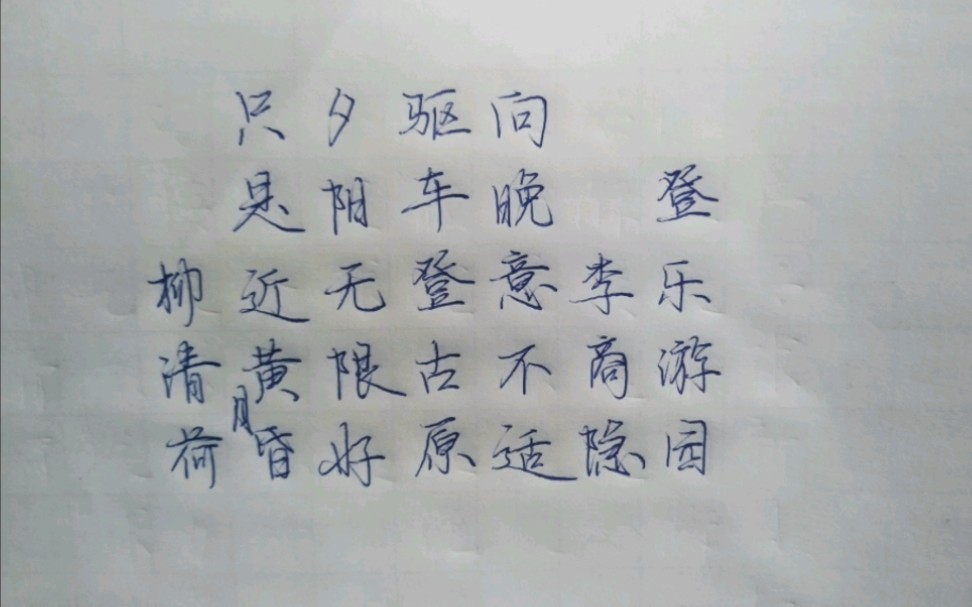 登乐游园
李商隐
向晚意不适
驱车登古原
夕阳无限好
只是近黄昏
柳清月荷